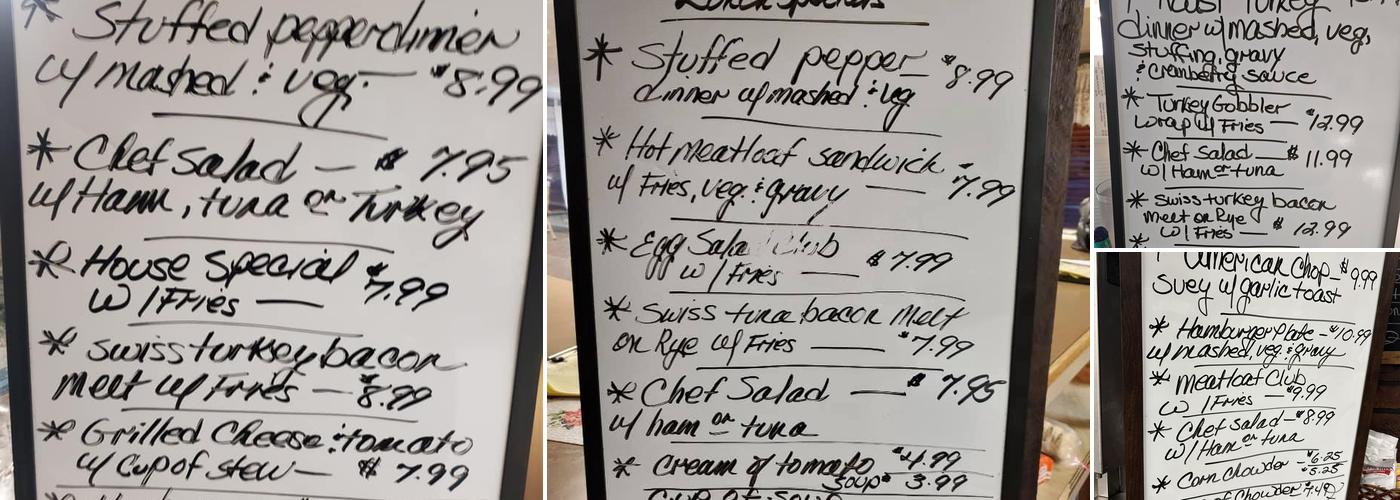 * Stuffed pepper dinner
w/ mashed & veg. — $8.99
* Chef Salad — $ 7.95
w/ Ham, tuna or Turkey
* House Special $7.99
w/ Fries —
* Swiss turkey bacon
melt w/ Fries — $8.99
* Grilled Cheese & tomato
w/ cup of stew — $ 7.99
Lunch Specials
* Stuffed pepper — $8.99
dinner w/ mashed & veg
* Hot meatloaf sandwich
w/ Fries, veg. & gravy — $7.99
* Egg Salad Club
w/ Fries — $7.99
* Swiss tuna bacon melt
on Rye w/ Fries — $7.99
* Chef Salad — $ 7.95
w/ ham or tuna
* Cream of tomato $4.99
Soup $3.99
cup of soup
Roast Turkey
dinner w/ mashed, veg,
stuffing, gravy
& cranberry sauce
* Turkey Gobbler
wrap w/ Fries — $12.99
* Chef Salad — $ 11.99
w/ Ham or tuna
* Swiss turkey bacon
melt on Rye
w/ Fries — $ 12.99
*
* American Chop — $9.99
Suey w/ garlic toast
* Hamburger Plate — $10.99
w/ mashed, veg. & gravy
* Meatloaf Club
w/ Fries — $9.99
* Chef Salad — $8.99
w/ Ham or tuna
* Corn Chowder — $6.25
$5.25
of Chowder $7.49